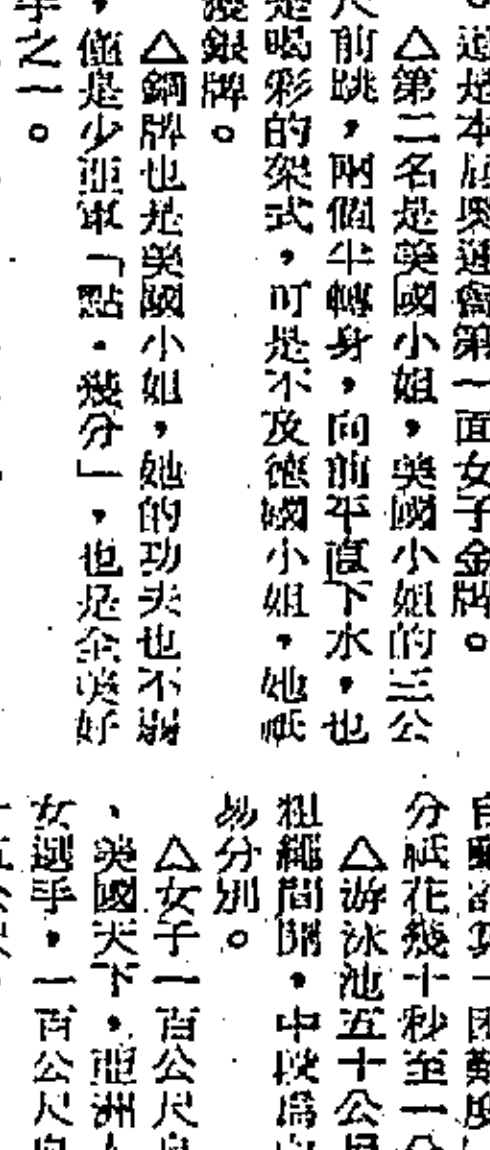 。這是本屆奧運會第一面女子金牌。
△第二名是美國小姐，美國小姐的三公
尺前跳，兩個半轉身，向前平直下水，也
是喝彩的架式，可是不及德國小姐，她祇
獲銀牌。
△銅牌也是美國小姐，她的功夫也不弱
，僅是少亞軍「點・幾分」，也是全美好
手之一。
分祇花幾十秒至一分
△游泳池五十公尺
粗繩間開，中段爲
易分別。
△女子一百公尺
、美國天下，亞洲
女選手，一百公尺
十五公尺